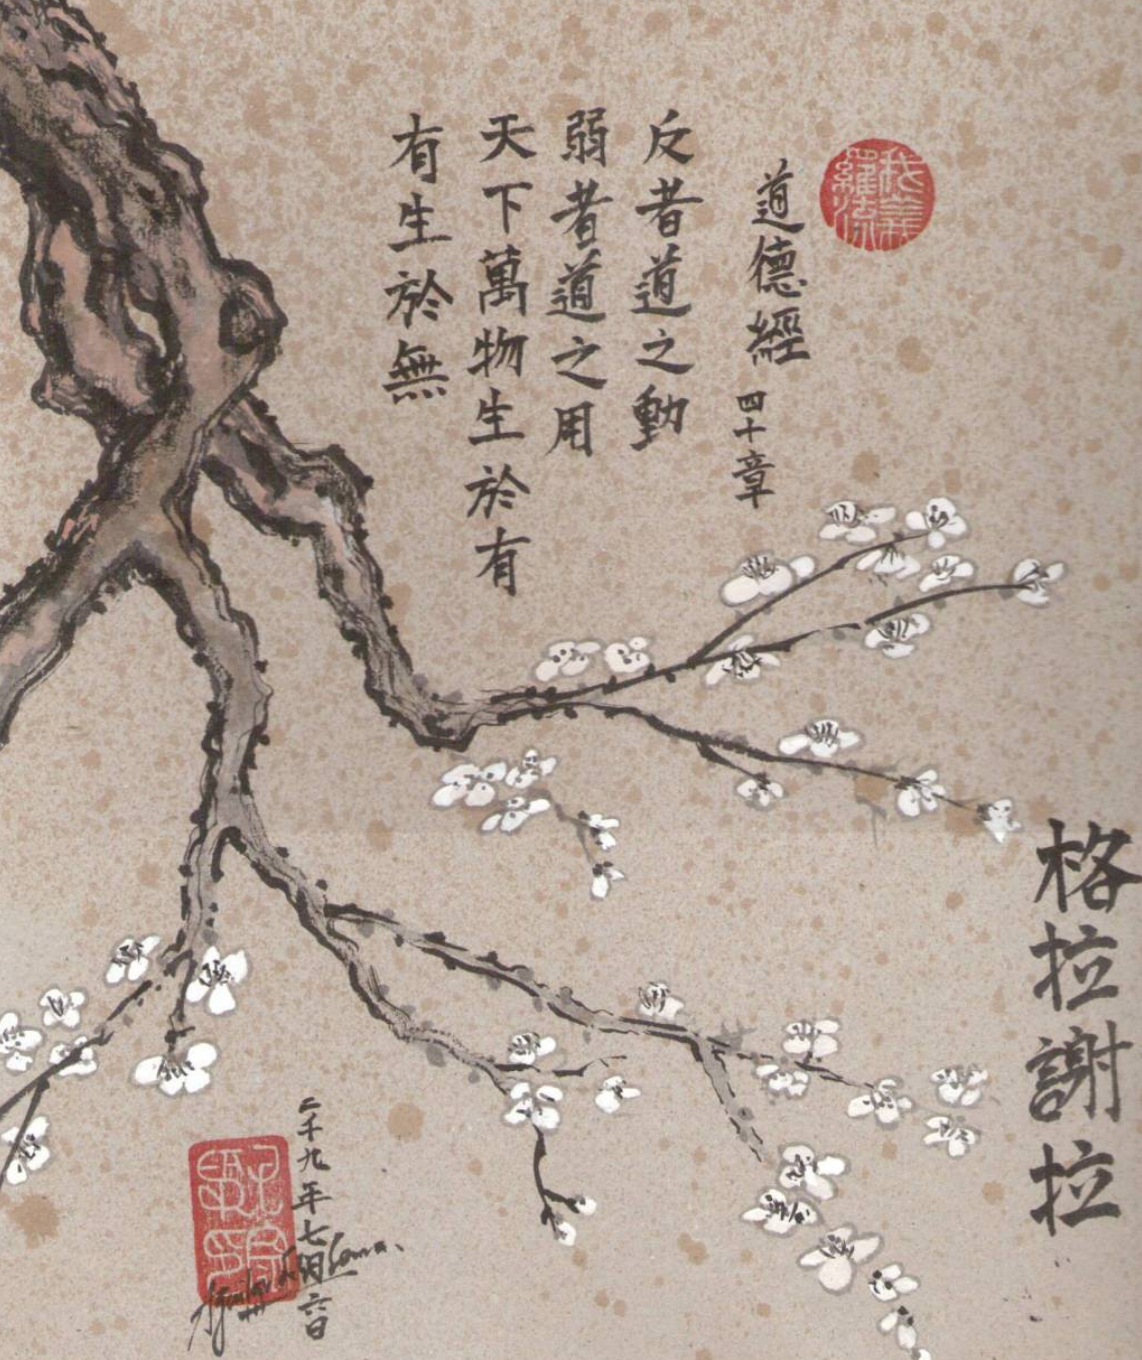 道德經 四十章
反者道之動
弱者道之用
天下萬物生於有
有生於無
格拉謝拉
二千九年七月六日